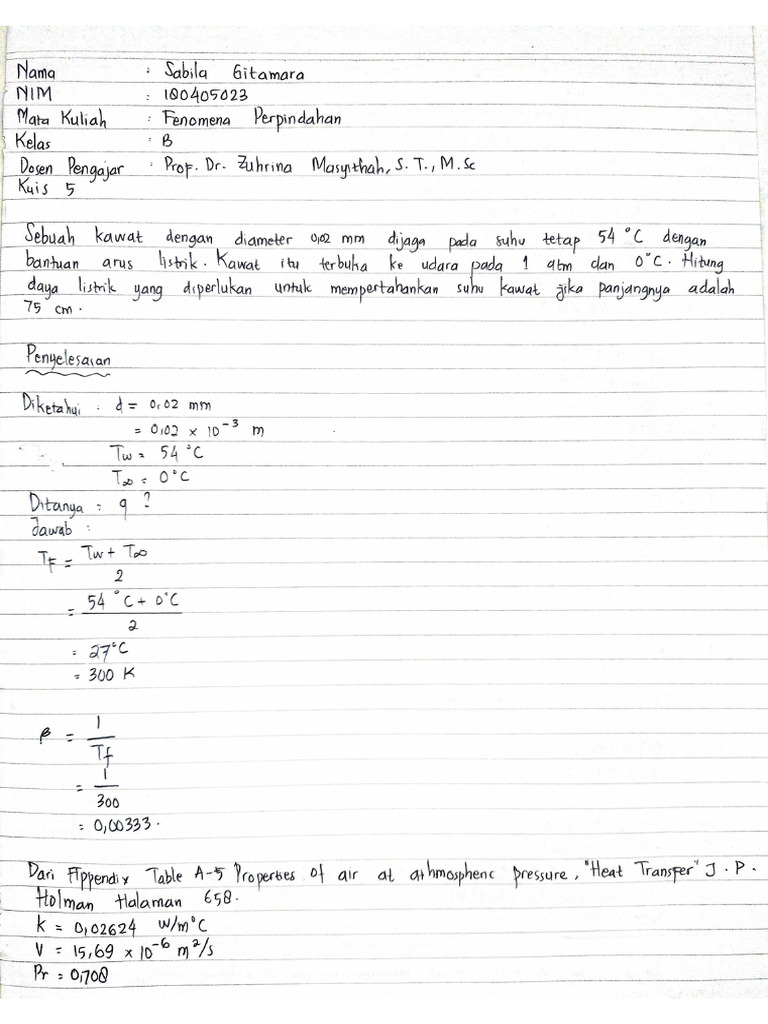 Nama : Sabila Gitamara
NIM : 180405023
Mata Kuliah : Fenomena Perpindahan
Kelas : B
Dosen Pengajar : Prof. Dr. Zuhrina Masyithah, S. T., M. Sc
Kuis 5
Sebuah kawat dengan diameter 0,02 mm dijaga pada suhu tetap 54 °C dengan
bantuan arus listrik. Kawat itu terbuka ke udara pada 1 atm dan 0°C. Hitung
daya listrik yang diperlukan untuk mempertahankan suhu kawat jika panjangnya adalah
75 cm.
Penyelesaian
Diketahui : d = 0,02 mm
= 0,02 × 10⁻³ m
Tw = 54 °C
T∞ = 0°C
Ditanya : q ?
Jawab :
TF = Tw + T∞
2
= 54 °C + 0°C
2
= 27°C
= 300 K
β = 1
Tf
= 1
300
= 0,00333.
Dari Appendix Table A-5 Properties of air at athmospheric pressure, "Heat Transfer" J. P.
Holman Halaman 658.
k = 0,02624 W/m°C
V = 15,69 × 10⁻⁶ m²/s
Pr = 0,708